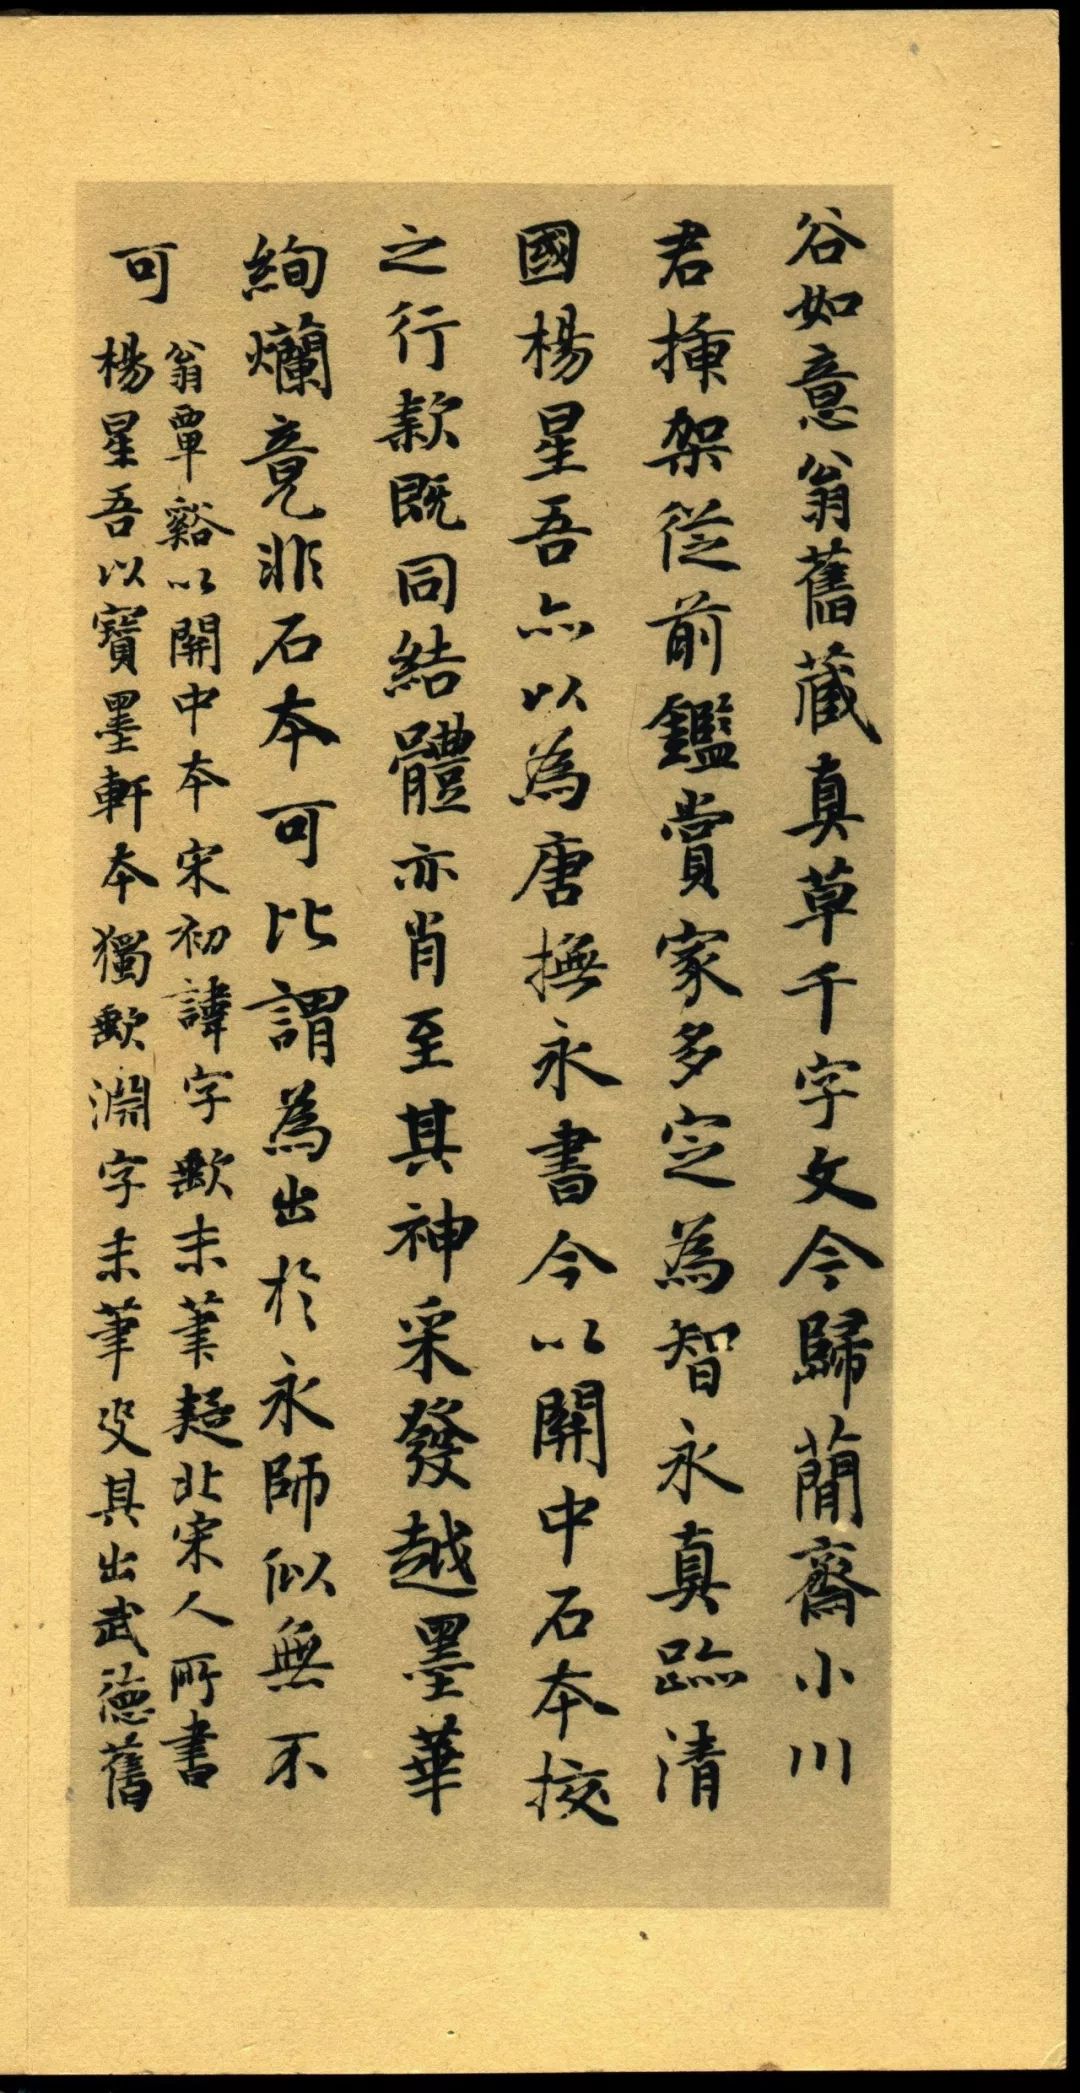 谷如意翁舊藏真草千字文今歸蕳齋小川
君揀架從前鑑賞家多定為智永真跡清
國楊星吾亦以為唐撫永書今以關中石本挍
之行款既同結體亦肖至其神采發越墨華
絢爛竟非石本可比謂為出於永師似無不
可
翁覃谿以關中本宋初諱字歟末筆疑北宋人所書
楊星吾以寶墨軒本獨歟淵字末筆叟其出武德舊